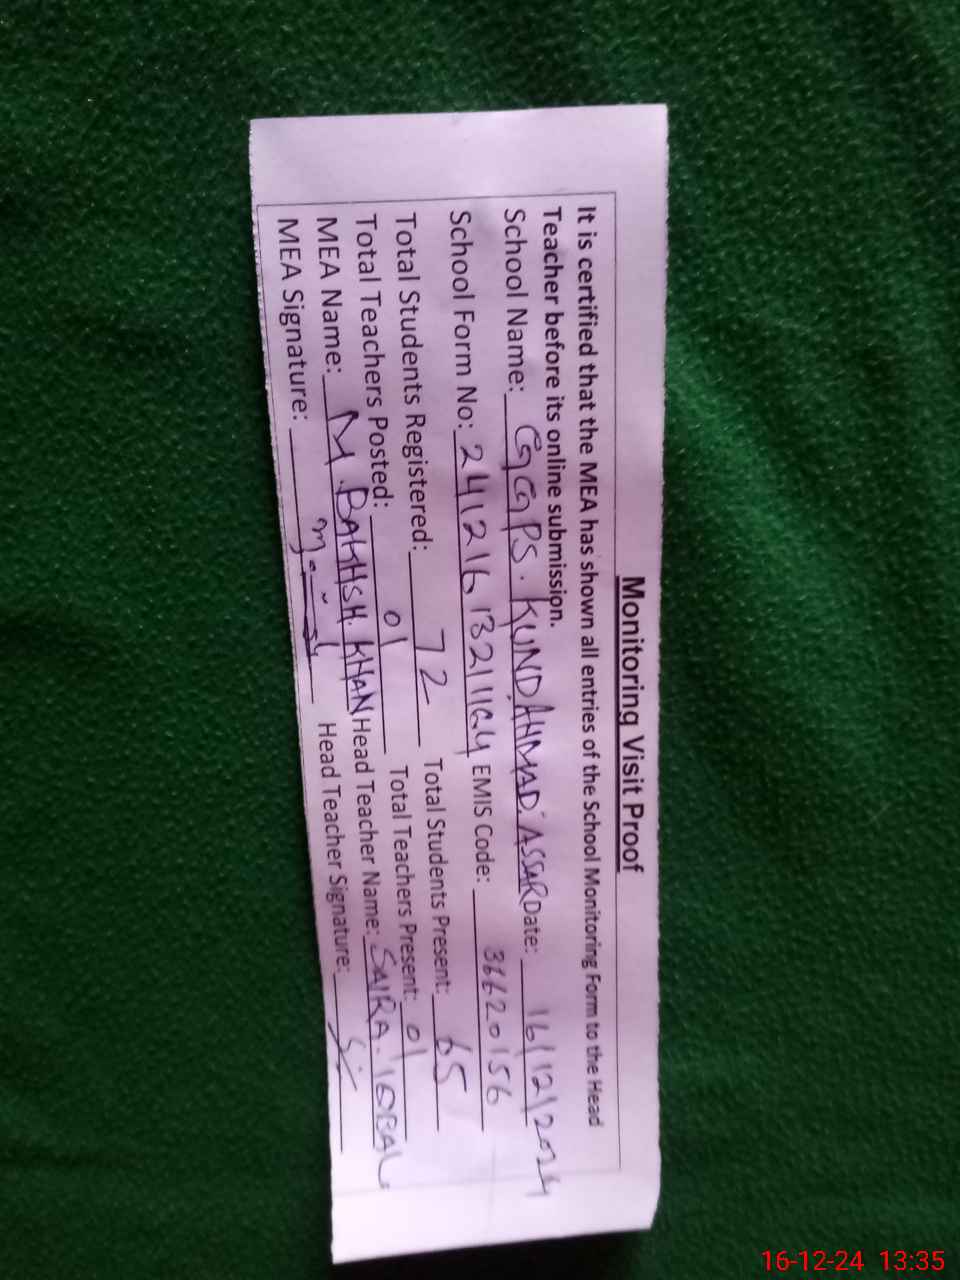 Monitoring Visit Proof
It is certified that the MEA has shown all entries of the School Monitoring Form to the Head
Teacher before its online submission.
School Name: GGPS. KUND AHMAD. ASSAR Date: 16/12/2024
School Form No: EMIS Code: 36620156
Total Students Registered: 72 Total Students Present: 65
Total Teachers Posted: 01 Total Teachers Present: 01
MEA Name: M. BAKHSH. KHAN Head Teacher Name: SAIRA. IQBAL
MEA Signature: Head Teacher Signature:
16-12-24 13:35